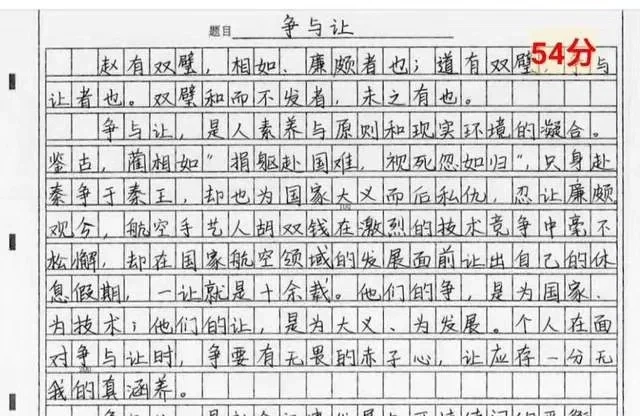 题目 争与让
54分
赵有双璧，相如、廉颇者也；道有双璧，争与
让者也。双璧和而不发者，未之有也。
争与让，是人素养与原则和现实环境的凝合。
鉴古，蔺相如“捐躯赴国难，视死忽如归”，只身赴
秦争于秦王，却也为国家大义而后私仇，忍让廉颇
观今，航空手艺人胡双钱在激烈的技术竞争中毫不
松懈，却在国家航空领域的发展面前让出自己的休
息假期，一让就是十余载。他们的争，是为国家、
为技术；他们的让，是为大义、为发展。个人在面
对争与让时，争要有无畏的赤子心，让应存一分无
我的真涵养。